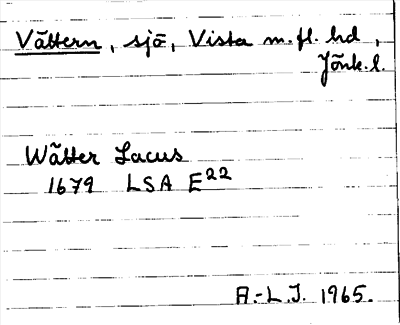 Vättern, sjö, Vista m.fl. hd,
Jönk.l.
Wätter Lacus
1679 LSA E22
A.-L.J. 1965.